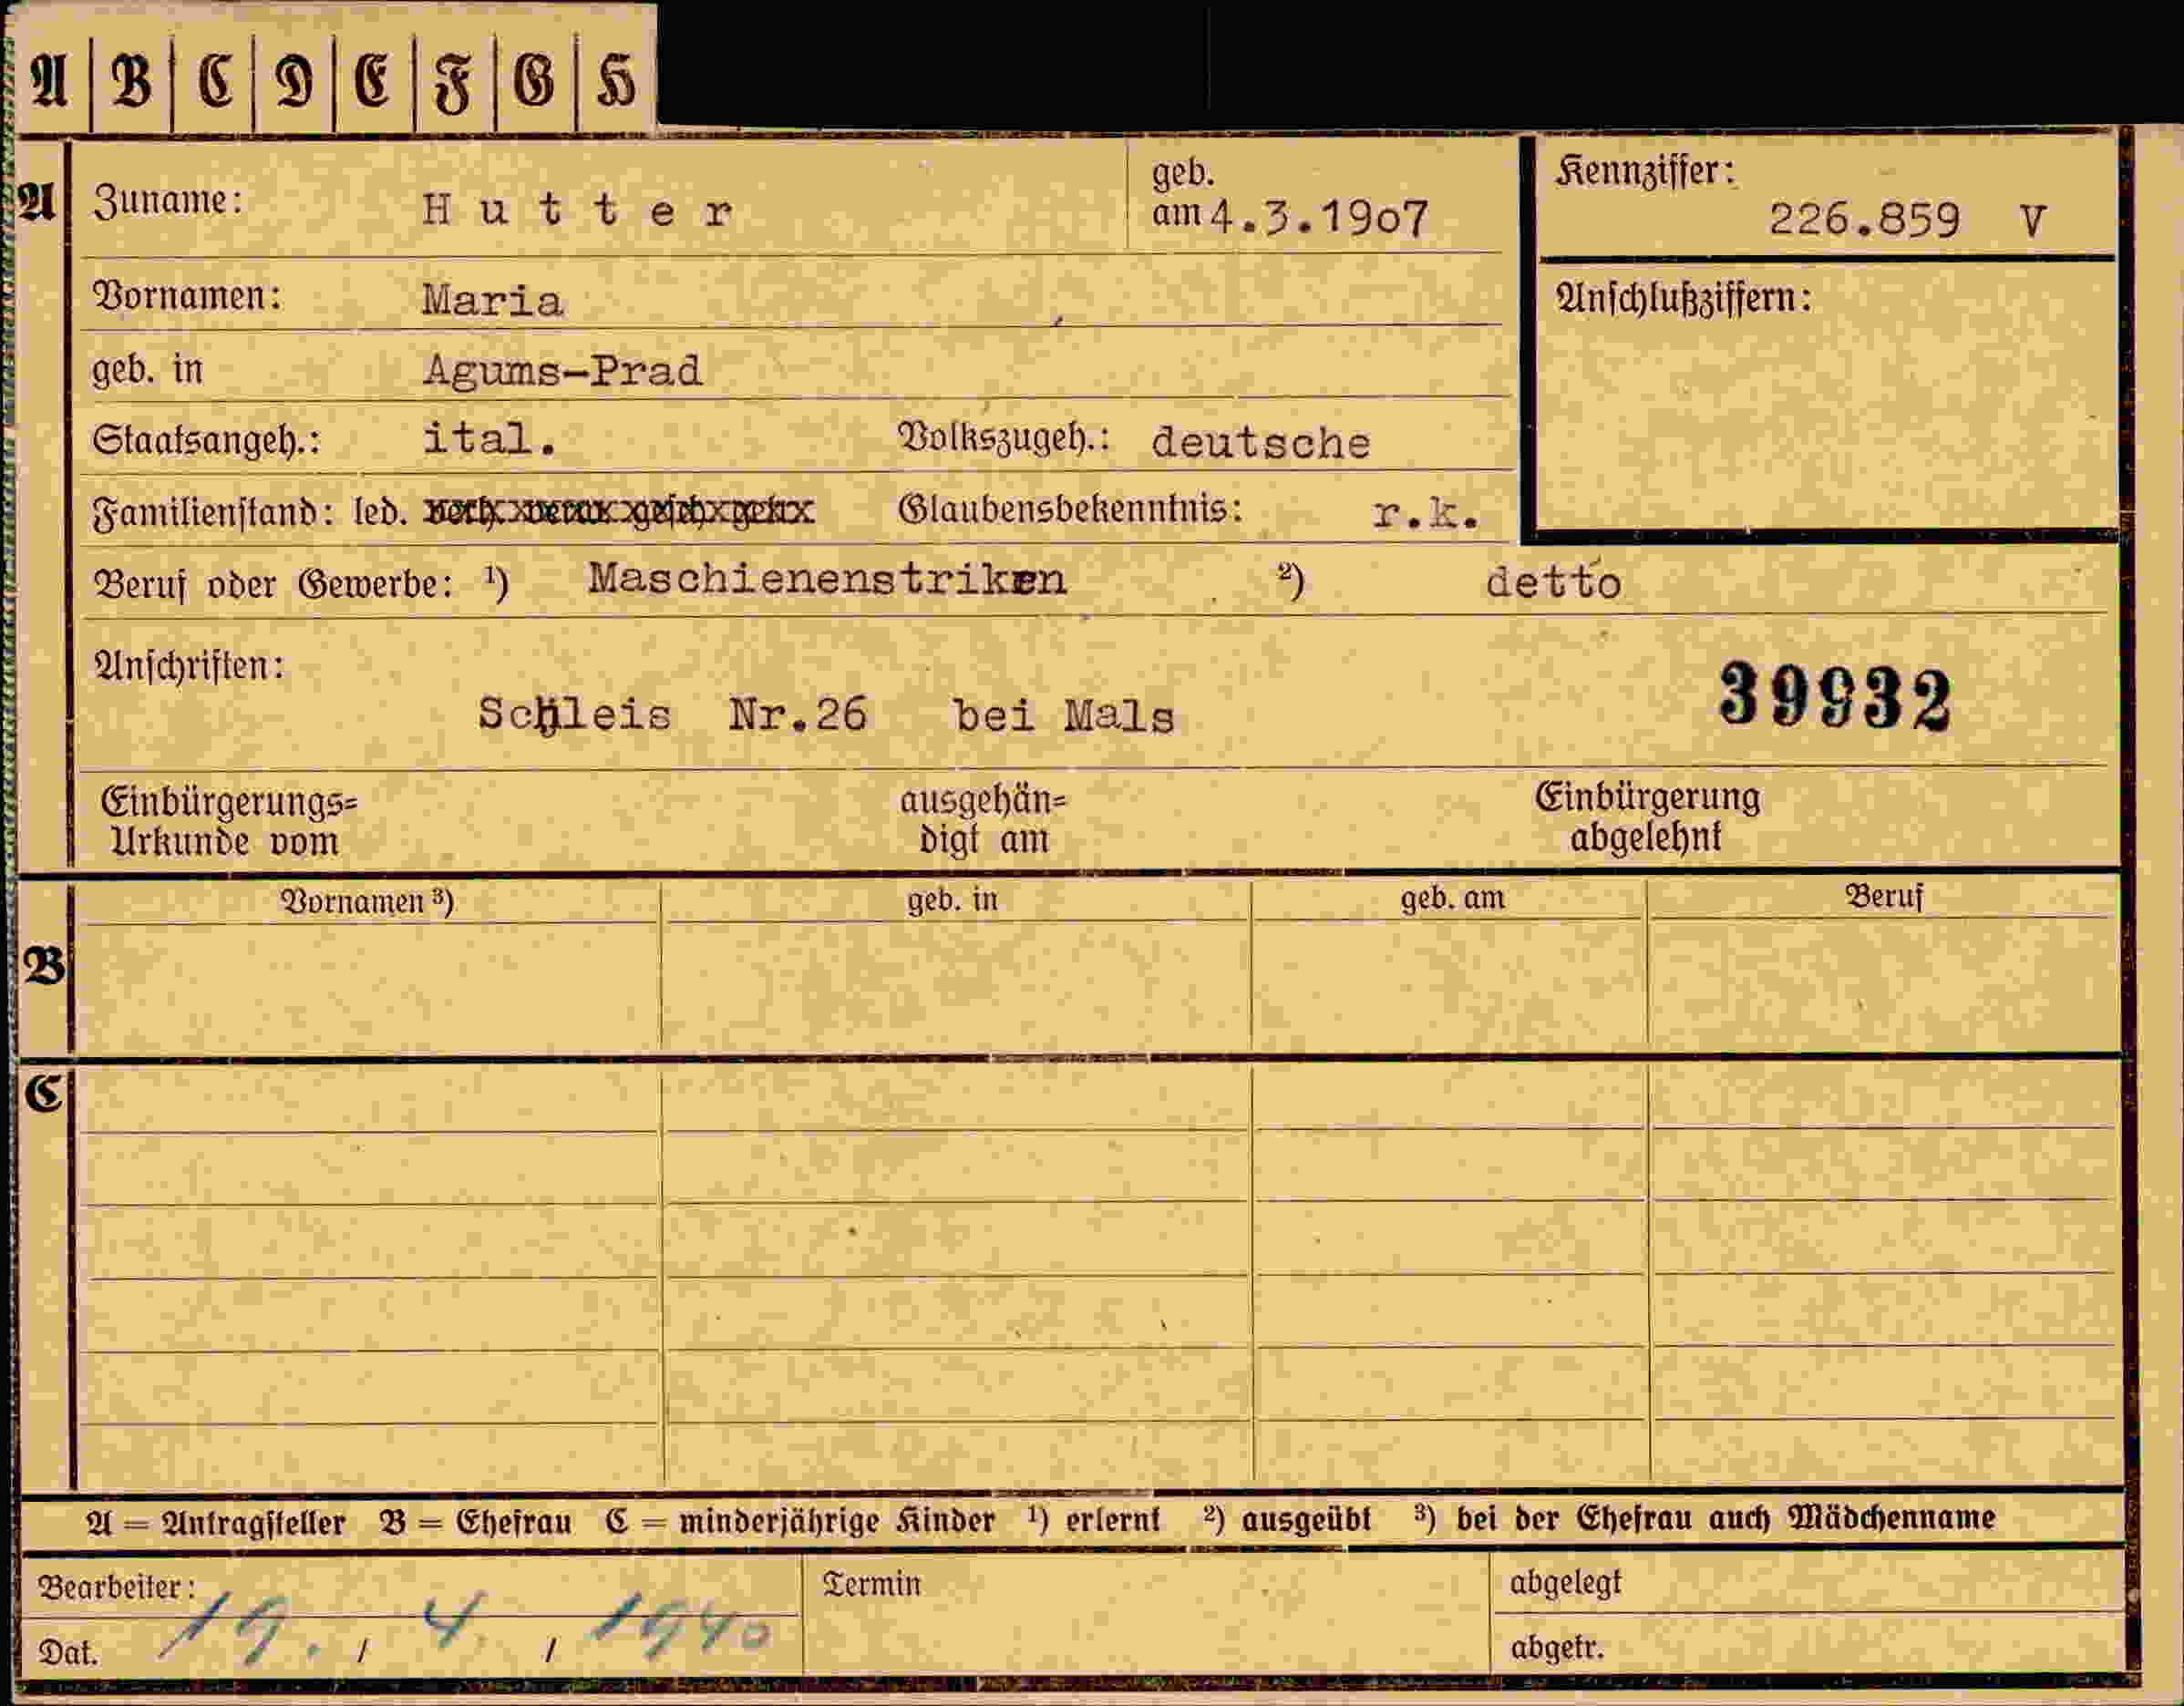 A B C D E F G H
A Zuname: Hutter geb. am 4.3.1907 Kennziffer: 226.859 V
Vornamen: Maria Anschlußziffern:
geb. in Agums-Prad
Staatsangeh.: ital. Volkszugeh.: deutsche
Familienstand: led. verh. verw. gesch. getr. Glaubensbekenntnis: r.k.
Beruf oder Gewerbe: ¹) Maschienenstriken ²) detto
Anschriften:
Schleis Nr.26 bei Mals 39932
Einbürgerungs= ausgehän= Einbürgerung
Urkunde vom digt am abgelehnt
Vornamen ³) geb. in geb. am Beruf
B
C
A = Antragsteller B = Ehefrau C = minderjährige Kinder ¹) erlernt ²) ausgeübt ³) bei der Ehefrau auch Mädchenname
Bearbeiter: Termin abgelegt
Dat. 19. / 4. / 1940 abgetr.